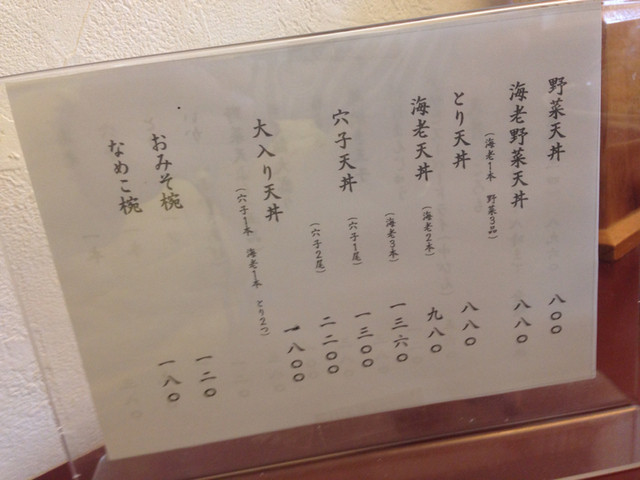 野菜天丼 八〇〇
海老野菜天丼 八八〇
(海老1本 野菜3品)
とり天丼 八八〇
海老天丼 (海老2本) 九八〇
(海老3本) 一三六〇
穴子天丼 (穴子1尾) 一三〇〇
(穴子2尾) 二二〇〇
大入り天丼 一八〇〇
(穴子1本 海老1本 とり2つ)
おみそ椀 一二〇
なめこ椀 一八〇